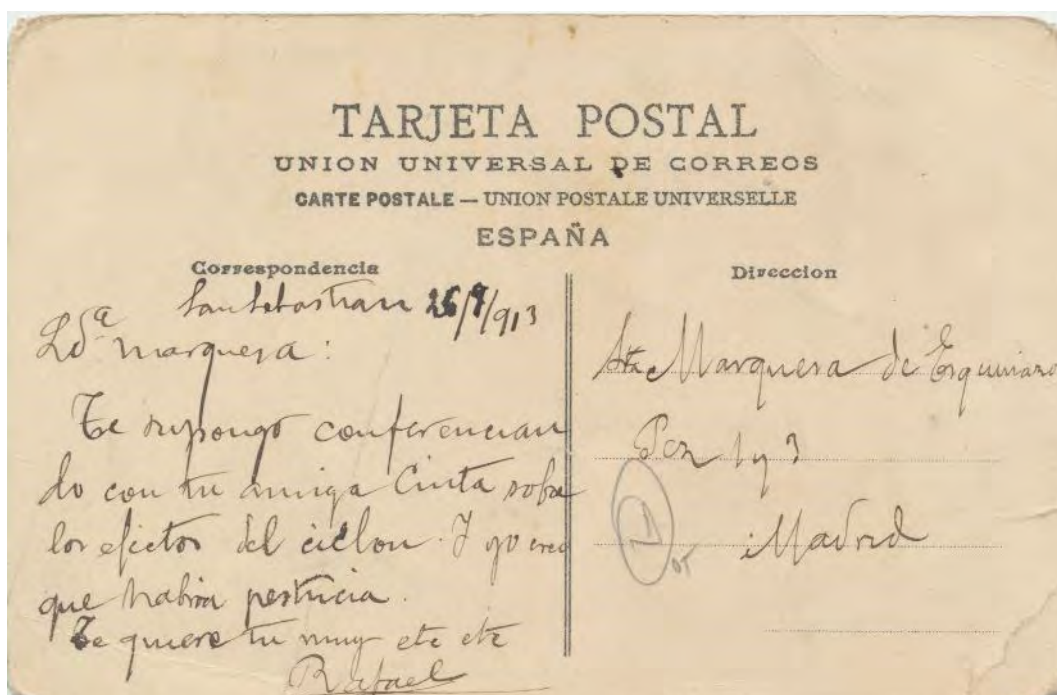 TARJETA POSTAL
UNION UNIVERSAL DE CORREOS
CARTE POSTALE — UNION POSTALE UNIVERSELLE
ESPAÑA
Correspondencia
San Sebastian 26/9/913
marquesa:
Te supongo conferencian
do con tu amiga Cinta sobre
los efectos del ciclon. Y yo creo
que habia
Te quiere tu muy etc etc
Rafael
Direccion
Marquesa de
Pez 1 y 3
Madrid